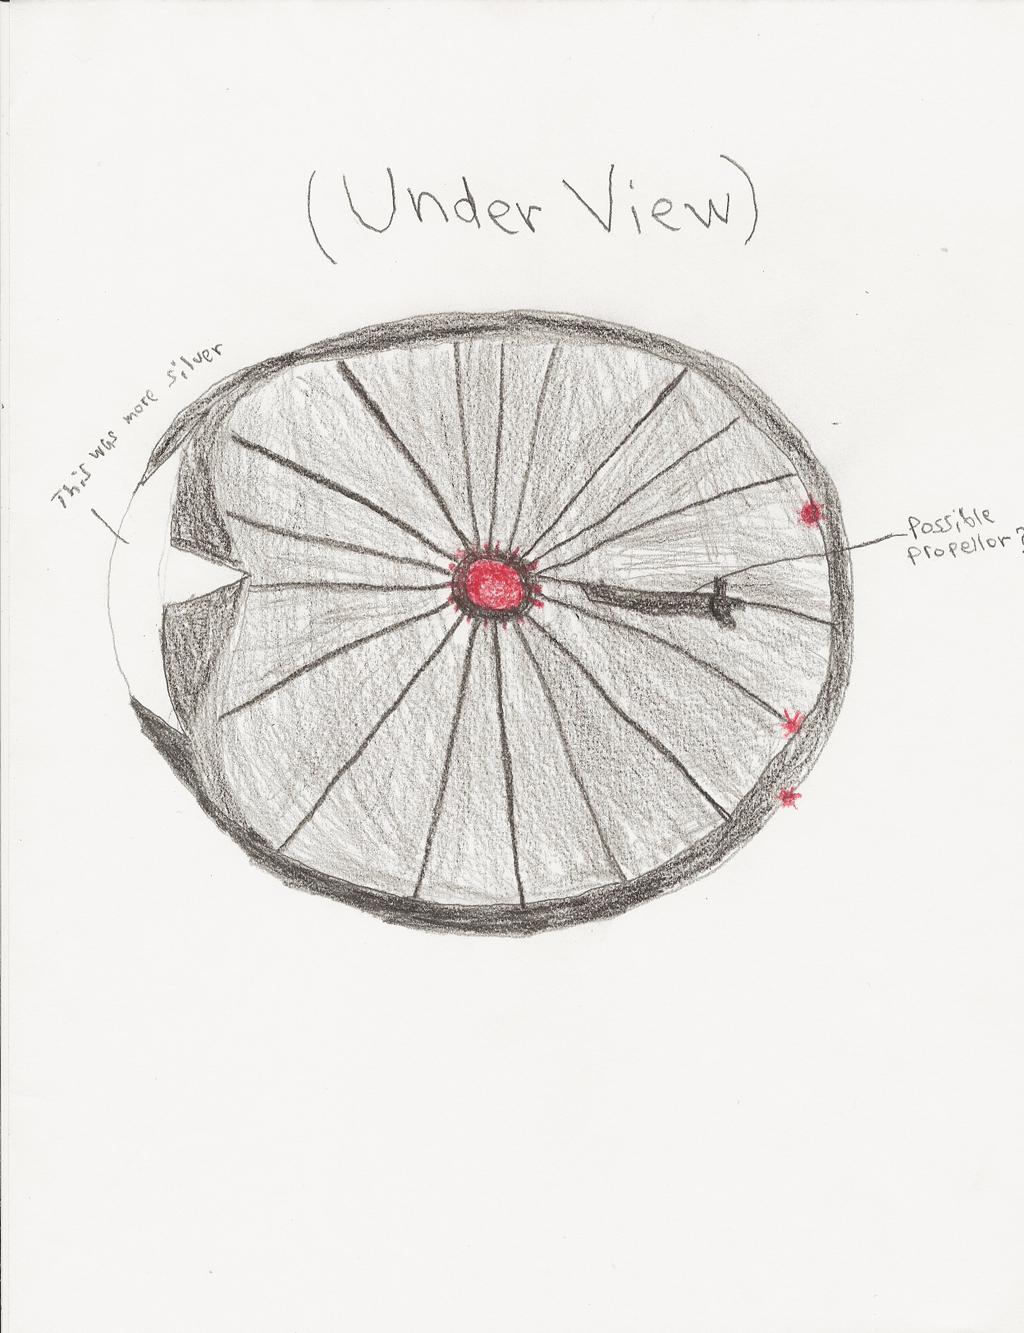 (Under View)
This was more silver
Possible
propellor?